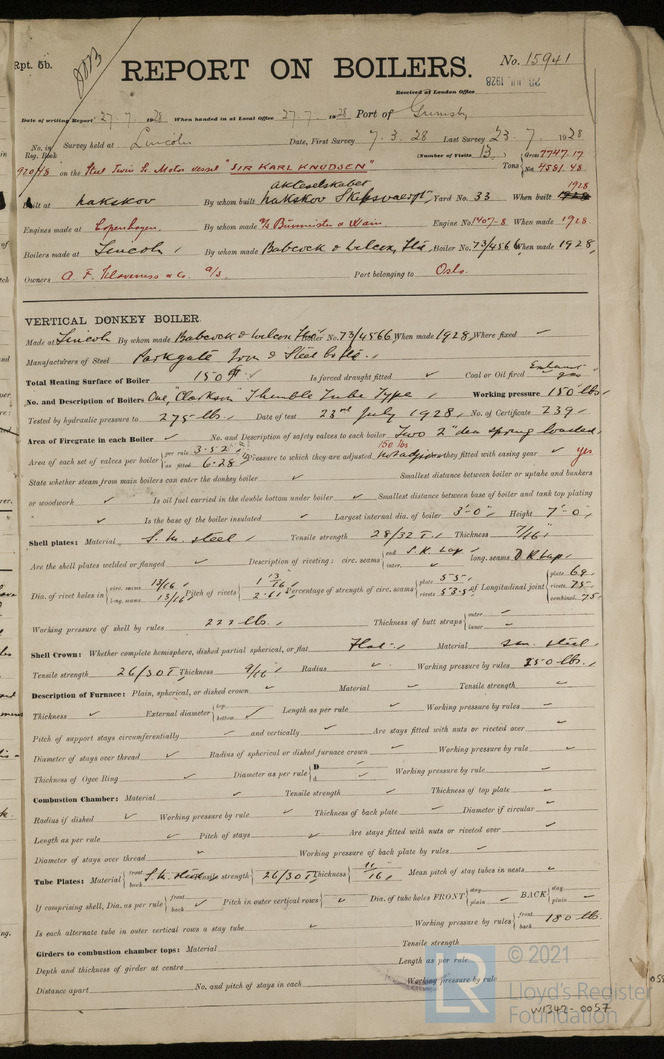 Rpt. 5b.
REPORT ON BOILERS.
No. 15941
Received at London Office
28 JUL 1928
Date of writing Report 27.7.1928 When handed in at Local Office 27.7.1928 Port of Grimsby
No. in Reg. Book Survey held at Lincoln Date, First Survey 7.3.28 Last Survey 23.7.1928
(Number of Visits 13.) Gross 7747.17
on the Steel Twin Sc. Motor vessel "SIR KARL KNUDSEN" Tons Net 4581.48
Built at Nakskov By whom built Nakskov Yard No. 33 When built 1928
Engines made at Copenhagen By whom made Burmeister & Wain Engine No. 1407-8 When made 1928
Boilers made at Lincoln By whom made Babcock & Wilcox Ltd. Boiler No. 73/4566 When made 1928
Owners A. F. Klaveness & Co. A/S Port belonging to Oslo.
VERTICAL DONKEY BOILER.
Made at Lincoln By whom made Babcock & Wilcox Ltd Boiler No. 73/4566 When made 1928 Where fixed
Manufacturers of Steel Parkgate Iron & Steel Co Ltd.
Total Heating Surface of Boiler 150 Is forced draught fitted Coal or Oil fired Exhaust gas
No. and Description of Boilers One, "Clarkson" Thimble Tube Type Working pressure 150 lbs
Tested by hydraulic pressure to 275 lbs. Date of test 23rd July 1928 No. of Certificate 239
Area of Firegrate in each Boiler No. and Description of safety valves to each boiler Two 2" dia spring loaded
Area of each set of valves per boiler per rule 3.52 as fitted 6.28 Pressure to which they are adjusted 150 lbs Are they fitted with easing gear yes
State whether steam from main boilers can enter the donkey boiler Smallest distance between boiler or uptake and bunkers
or woodwork Is oil fuel carried in the double bottom under boiler Smallest distance between base of boiler and tank top plating
Is the base of the boiler insulated Largest internal dia. of boiler 3'-0" Height 7'-0"
Shell plates: Material S.M. steel Tensile strength 28/32 T. Thickness 7/16"
Are the shell plates welded or flanged Description of riveting: circ. seams end S.R. Lap inter. long. seams D.R. Lap
Dia. of rivet holes in circ. seams 13/16 long. seams 13/16 Pitch of rivets 1 13/16 2.61 Percentage of strength of circ. seams plate 55 rivets 53.5 of Longitudinal joint plate 69 rivets 75 combined 75
Working pressure of shell by rules 222 lbs. Thickness of butt straps outer inner
Shell Crown: Whether complete hemisphere, dished partial spherical, or flat Flat Material S.M. steel
Tensile strength 26/30 T. Thickness 9/16 Radius Working pressure by rules 250 lbs.
Description of Furnace: Plain, spherical, or dished crown Material Tensile strength
Thickness External diameter top bottom Length as per rule Working pressure by rules
Pitch of support stays circumferentially and vertically Are stays fitted with nuts or riveted over
Diameter of stays over thread Radius of spherical or dished furnace crown Working pressure by rule
Thickness of Ogee Ring Diameter as per rule D d Working pressure by rule
Combustion Chamber: Material Tensile strength Thickness of top plate
Radius if dished Working pressure by rule Thickness of back plate Diameter if circular
Length as per rule Pitch of stays Are stays fitted with nuts or riveted over
Diameter of stays over thread Working pressure of back plate by rules
Tube Plates: Material front back S.M. steel Tensile strength 26/30 T Thickness 11/16 Mean pitch of stay tubes in nests
If comprising shell, Dia. as per rule front back Pitch in outer vertical rows Dia. of tube holes FRONT stay plain BACK stay plain
Is each alternate tube in outer vertical rows a stay tube Working pressure by rules front back 180 lb.
Girders to combustion chamber tops: Material Tensile strength
Depth and thickness of girder at centre Length as per rule
Distance apart No. and pitch of stays in each Working pressure by rule
© 2021
LR
Lloyd's Register
Foundation
W1342-0057